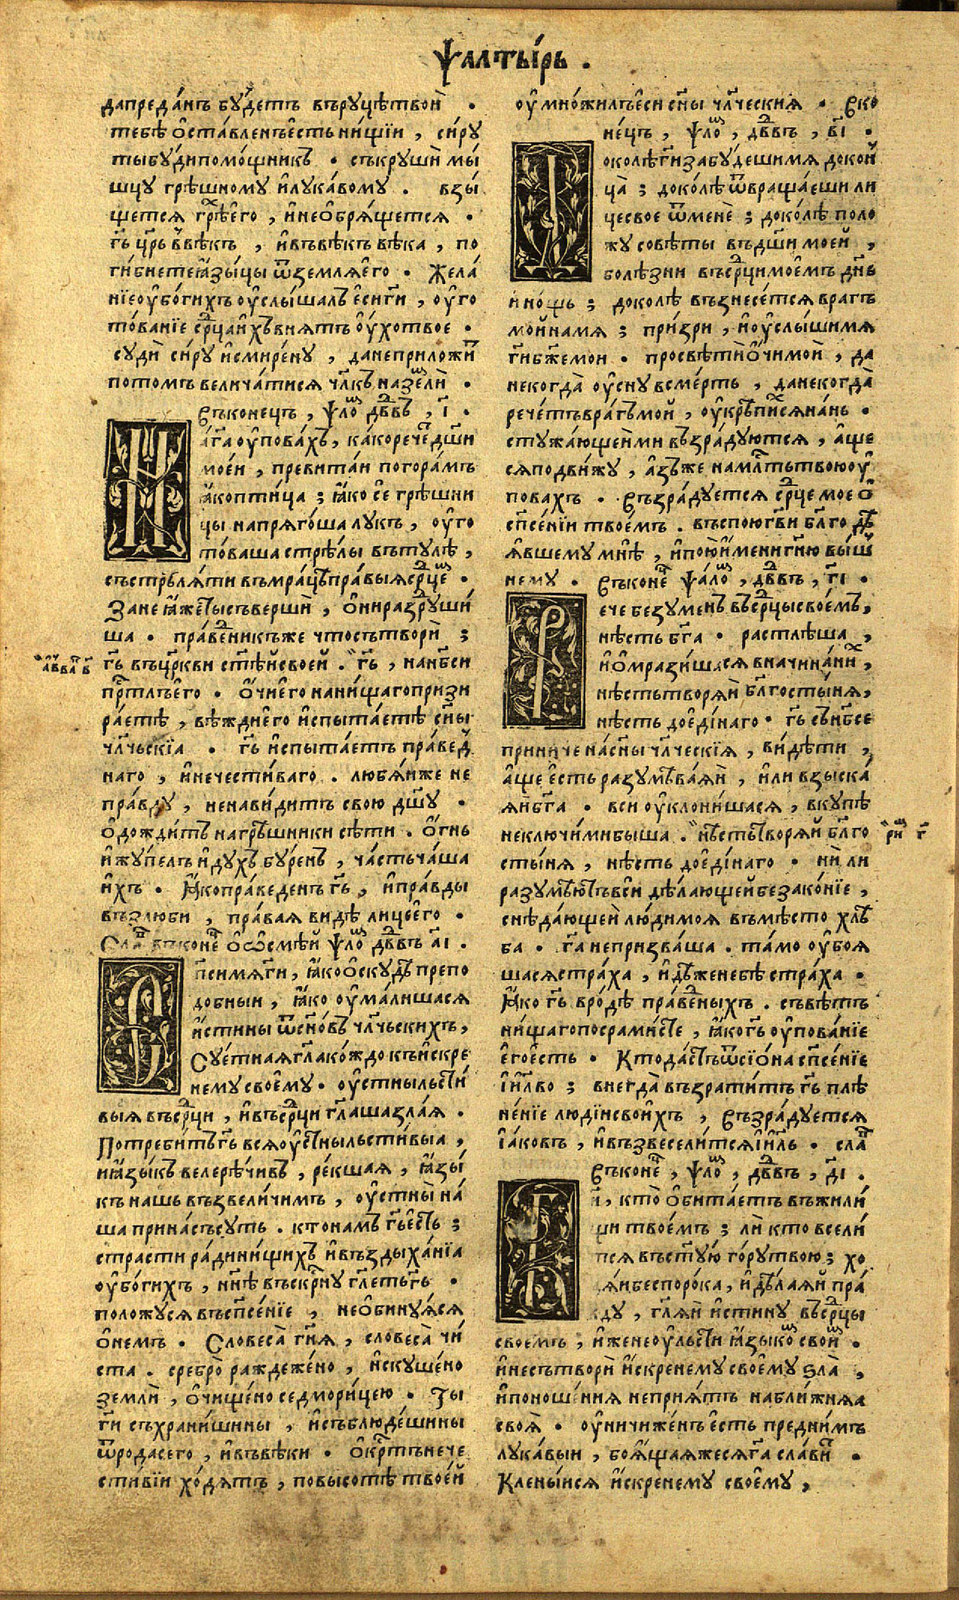 Ѱалтырь .
дапреданъ будетъ вруцѣтвои .
тебѣ оставленъесть нищіи , сиру
тыбудипомощникъ . съкруши мы
шцу грѣшному илукавому . взы
щется грѣхего , инеобрящется .
гь црь ввѣкъ , ивъвѣкъ вѣка , по
гибнетеꙗзыцы ѿземляего . Жела
ніеоубогихъ оуслышалъ есиги , оуго
тованіе срцаихъ внятъ оухотвое .
суди сиру исмирену , данеприложи
потомъ величатися члкъ назели .
Въконецъ , ѱло дв͠въ , і .
Нага оуповахъ , какоречедши
моеи , превитаи погорамъ
ꙗкоптица ; ꙗко се грѣшни
цы напрягоша лукъ , оуго
товаша стрѣлы втулѣ ,
състрѣляти въмрацѣправыясрцем .
Зане ꙗжеты съверши , онираздруши
ша . праведникъже чтосътвори ;
гь въцркви стѣйсвоей . гь , нанбси
пртлъего . очиего нанищагопризи
раетѣ , вѣждиего испытаетѣ сны
члчьскіа . гь испытаетъ правед
наго , инечестиваго . любяиже не
правду , ненавидитъ свою дшу .
одождитъ нагрѣшники сѣти . огнь
ижупелъ идухъ буренъ , частьчаша
ихъ . ꙗкоправеденъ гь , иправды
възлюби , правая видѣ лицеего .
Сла въконе оосмѣй ѱло дв͠въ аі .
Спсимяги , ꙗкооскудѣ препо
добныи , ꙗко оумалишася
истины ѿсновъ члчьскихъ ,
Суетнаягла кождо къискре
нему своему . оустныльсти
выя въсрци , ивъсрци глашазлая .
Потребитъгь всяоустныльстивыа ,
иꙗзыкъ велерѣчивъ , рекшая , ꙗзы
къ нашъ възвеличимъ , оустны на
ша принасъсуть . ктонамъ гьесть ;
страсти радинищихъ ивъздыханіа
оубогихъ , ннѣ въскрну глетьгь .
положуся въспсеніе , необинуяся
онемъ . Словеса гня , словеса чи
ста . сребро раждежено , искушено
земли , очищено седморицею . Ты
ги съхранишины , исъблюдешины
ѿродасего , ивъвѣки . окртънече
стивіи ходятъ , повысотѣ твоей
оумножилъеси сны члческия . Въко
нецъ , ѱло , дв͠въ , ві .
Доколѣгизабудешимя докон
ца ; доколѣ ѿвращаеши ли
цесвое ѿмене ; доколѣ поло
жу совѣты въдши моей ,
болѣзни въсрцимоемъ днь
и нощь ; доколѣ възнесется врагъ
мойнамя ; призри , иоуслышимя
гибжемои . просвѣтиочимой , да
некогда оусну всмерть , данекогда
речетъврагъмой , оукрѣпихсянань .
стужающеими възрадуются , аще
сяподвижу , азъже намлтьтвоюоу
повахъ . Възрадуется срцемое о
спсеніи твоемъ . въспоюгви блгодѣ
явшему мнѣ , ипоюимени гню выш
нему . Въконе ѱало , дв͠въ , гі
Рече безуменъ въсрцысвоемъ ,
нѣсть бга . растлѣша ,
иомразишася вначинаних ,
нѣстьтворяй блгостыня ,
нѣсть доединаго . гь снбсе
приниче насны члческія , видѣти ,
аще есть разумѣваяй , или взыска
яйбга . вси оуклонишася , вкупѣ
неключимибыша . нѣстьтворяй блго
стыня , нѣсть доединаго . ни ли
разумѣютъвси дѣлающейбезаконіе ,
снѣдающей людимоя въмѣсто хлѣ
ба . га непризваша . тамо оубоя
шасястраха , идѣженебѣ страха .
ꙗко гь вродѣ праведныхъ . съвѣтъ
нищагопосрамисте , ꙗкогь оупованіе
егоесть . Ктодастьѿсіона спсеніе
іилво ; внегда възратитъ гь плѣ
неніе людіисвоихъ , Възрадуется
іаковъ , ивъзвеселитсяіиль . сла
Въконе , ѱло , дв͠въ , ді .
Ги , кто обитаетъ въжили
щи твоемъ ; ли кто всели
тся въстую горутвою ; хо
дяибеспорока , идѣлаяй пра
вду , гляй истину въсрцы
своемъ , иженеоульсти ꙗзыком своим .
инесътвори искренему своему ѕла ,
ипоношения неприятъ наближняа
своя . оуничиженъесть предним
лукавыи , боящаяжесяга славит .
Кленыися искренему своему ,